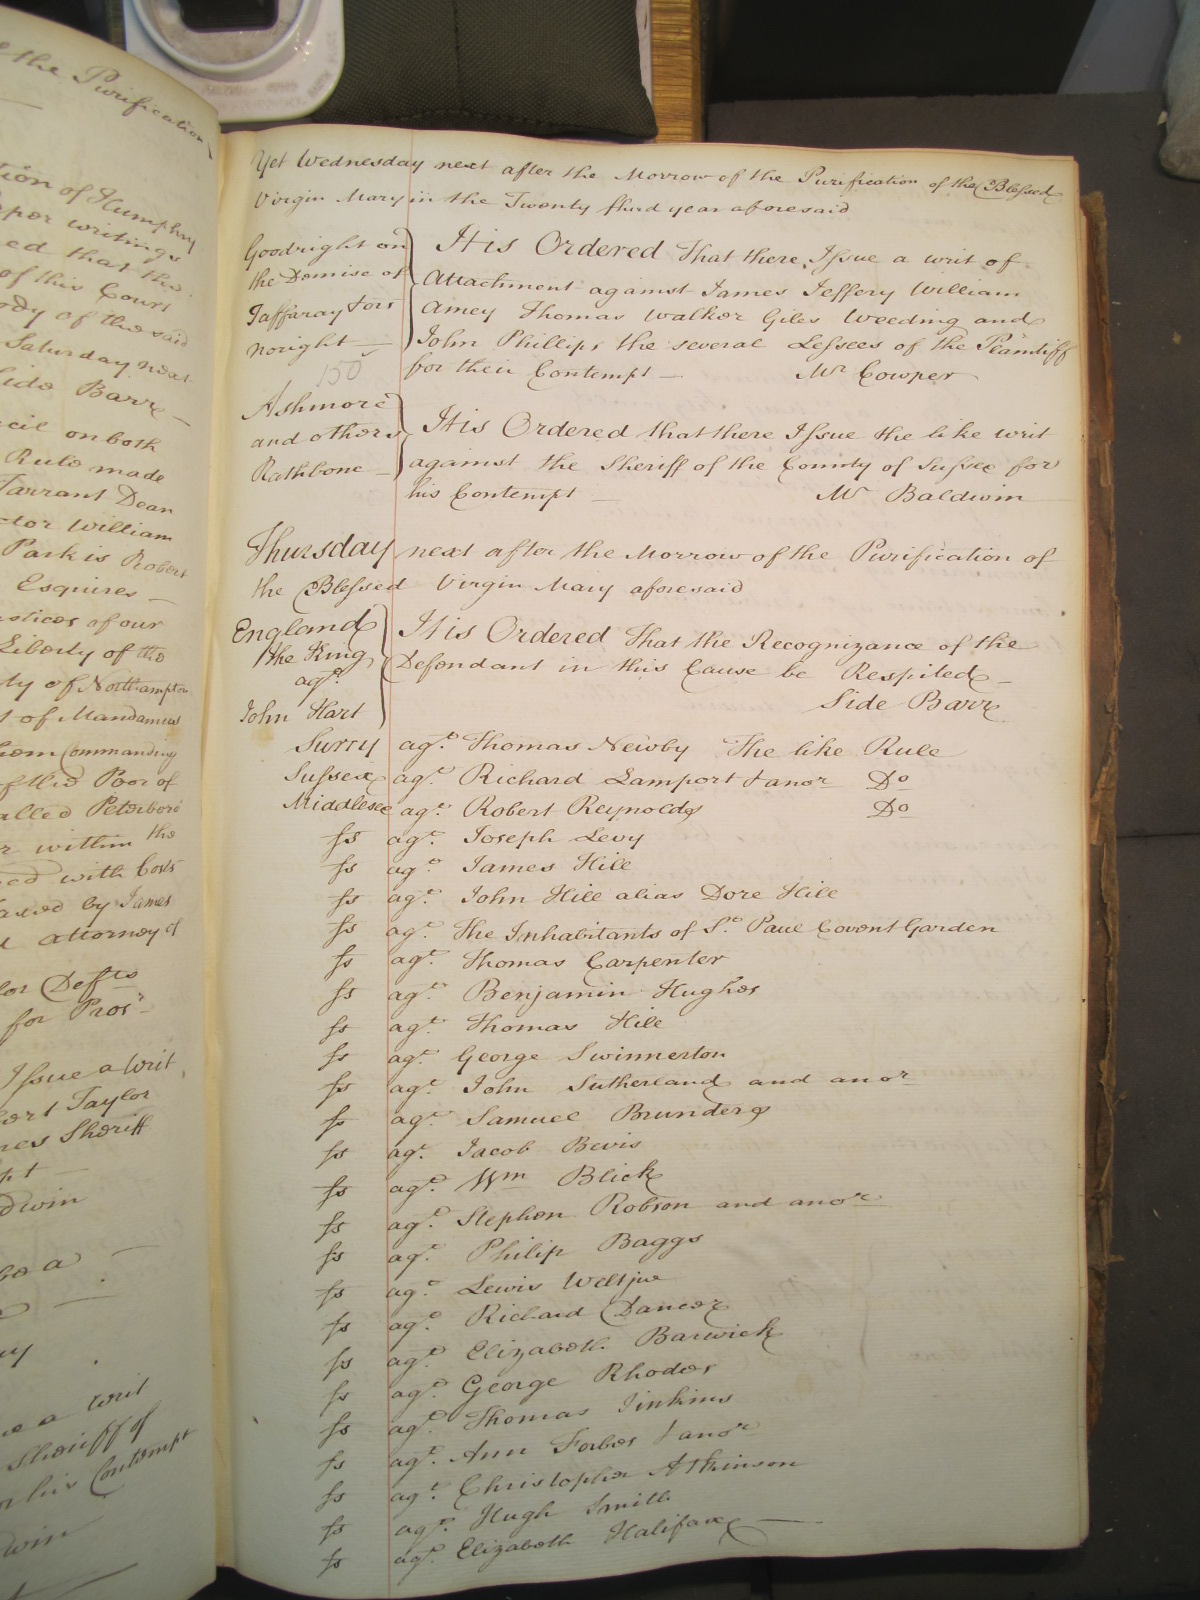 of the Purification
tion of Humphry
per writings
ed that the
of this Court
ody of the said
Saturday next
Side Barr
cil on both
Rule made
Tarrant Dean
ctor William
Parkis Robert
Esquires
ustices of our
Liberty of the
ty of Northampton
t of Mandamus
hom Commanding
of the Poor of
alled Peterboro
r within the
ed with Costs
axed by James
attorney of
for Defts
for Prosr
Issue a Writ
bert Taylor
mes Sheriff
pt
dwin
be a
a writ
Sheriff of
his Contempt
dwin
Yet Wednesday next after the Morrow of the Purification of the Blessed
Virgin Mary in the Twenty third year aforesaid
Goodright on
the Demise of
Jaffaray & ors
noright
150
It is Ordered That there Issue a writ of
Attachment against James Jeffery William
Amey Thomas Walker Giles Weeding and
John Phillips the several Lessees of the Plaintiff
for their Contempt — Mr Cowper
Ashmore
and others
Rathbone
It is Ordered that there Issue the like writ
against the Sheriff of the County of Sussex for
his Contempt — Mr Baldwin
Thursday next after the Morrow of the Purification of
the Blessed Virgin Mary aforesaid
England
The King
agt
John Hart
It is Ordered That the Recognizance of the
Defendant in this Cause be Respited —
Side Barr
Surry agt Thomas Newby The like Rule
Sussex agt Richard Lamport & anor Do
Middlesex agt Robert Reynolds Do
ss agt Joseph Levy
ss agt James Hill
ss agt John Hill alias Dore Hill
ss agt The Inhabitants of St Paul Covent Garden
ss agt Thomas Carpenter
ss agt Benjamin Hughes
ss agt Thomas Hill
ss agt George Swinnerton
ss agt John Sutherland and anor
ss agt Samuel Brunderg
ss agt Jacob Bevis
ss agt Wm Blick
ss agt Stephen Robson and anor
ss agt Philip Baggs
ss agt Lewis Weltjue
ss agt Richard Dancer
ss agt Elizabeth Barwick
ss agt George Rhodes
ss agt Thomas Jinkins
ss agt Ann Forbes & anor
ss agt Christopher Atkinson
ss agt Hugh Smith
ss agt Elizabeth Halifax —